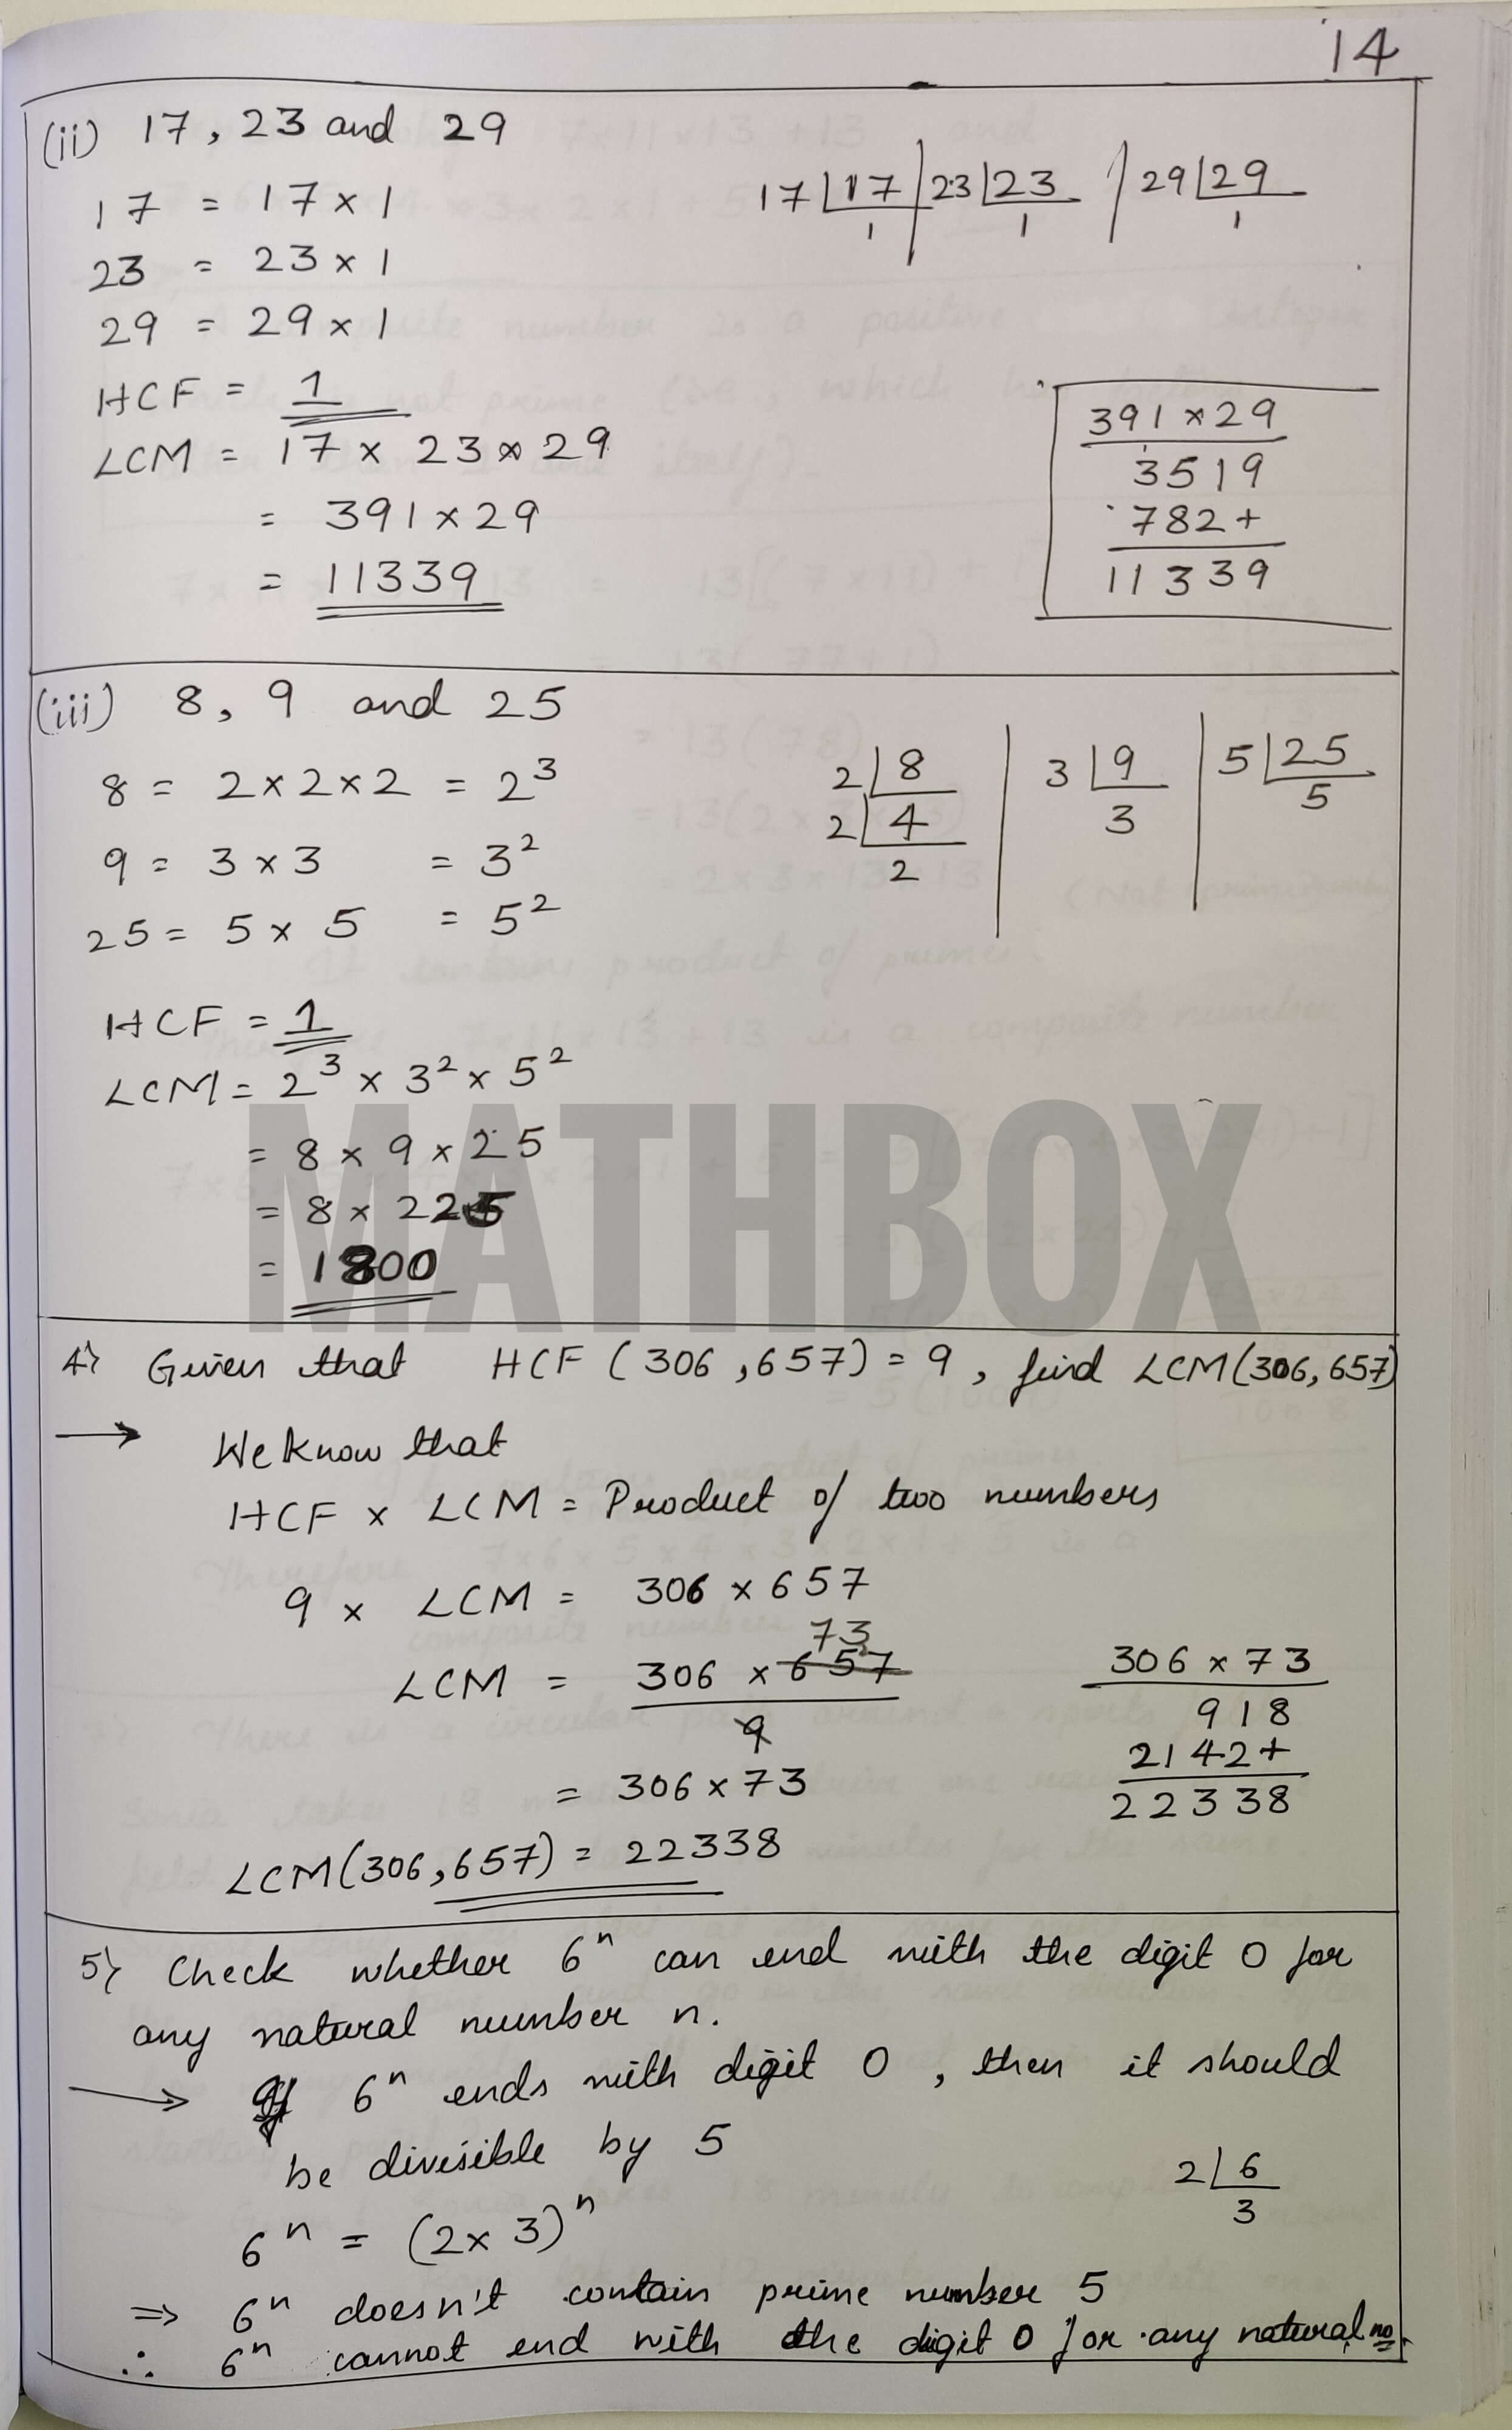 14
(ii) 17, 23 and 29
17 = 17 × 1
23 = 23 × 1
29 = 29 × 1
17 17 23 23 29 29
1 1 1
HCF = 1
LCM = 17 × 23 × 29
= 391 × 29
= 11339
391 × 29
3519
782+
11339
(iii) 8, 9 and 25
8 = 2 × 2 × 2 = 2³
9 = 3 × 3 = 3²
25 = 5 × 5 = 5²
2 8
2 4
2
3 9
3
5 25
5
HCF = 1
LCM = 2³ × 3² × 5²
= 8 × 9 × 25
= 8 × 225
= 1800
MATHBOX
4) Given that HCF (306, 657) = 9, find LCM(306, 657)
→ We know that
HCF × LCM = Product of two numbers
9 × LCM = 306 × 657
73
LCM = 306 × 657
9
= 306 × 73
LCM(306, 657) = 22338
306 × 73
918
2142+
22338
5) Check whether 6ⁿ can end with the digit 0 for
any natural number n.
→ If 6ⁿ ends with digit 0, then it should
be divisible by 5
6ⁿ = (2 × 3)ⁿ
2 6
3
⇒ 6ⁿ doesn't contain prime number 5
∴ 6ⁿ cannot end with the digit 0 for any natural no.